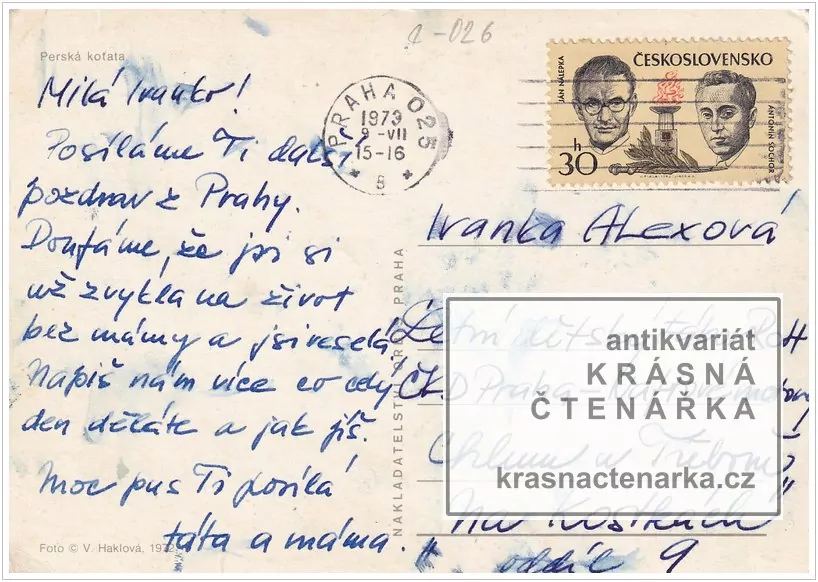 2-026
Perská koťata
Milá Ivanko!
Posíláme Ti další
pozdrav z Prahy.
Doufáme, že jsi si
už zvykla na život
bez mámy a jsi veselá.
Napiš nám více co celý
den děláte a jak jíš.
Moc pus Ti posílá
táta a máma.
Foto © V. Haklová, 1972
NAKLADATELSTVÍ ORBIS, PRAHA
PRAHA 025
1973
9-VII
15-16
B
ČESKOSLOVENSKO
JAN NÁLEPKA
ANTONÍN SOCHOR
30 h
Ivanka Alexová
Letní dětský
ČKD Praha -
Chlum u Třeboně
"Na Kostkách"
oddíl 9
antikvariát
KRÁSNÁ
ČTENÁŘKA
krasnactenarka.cz